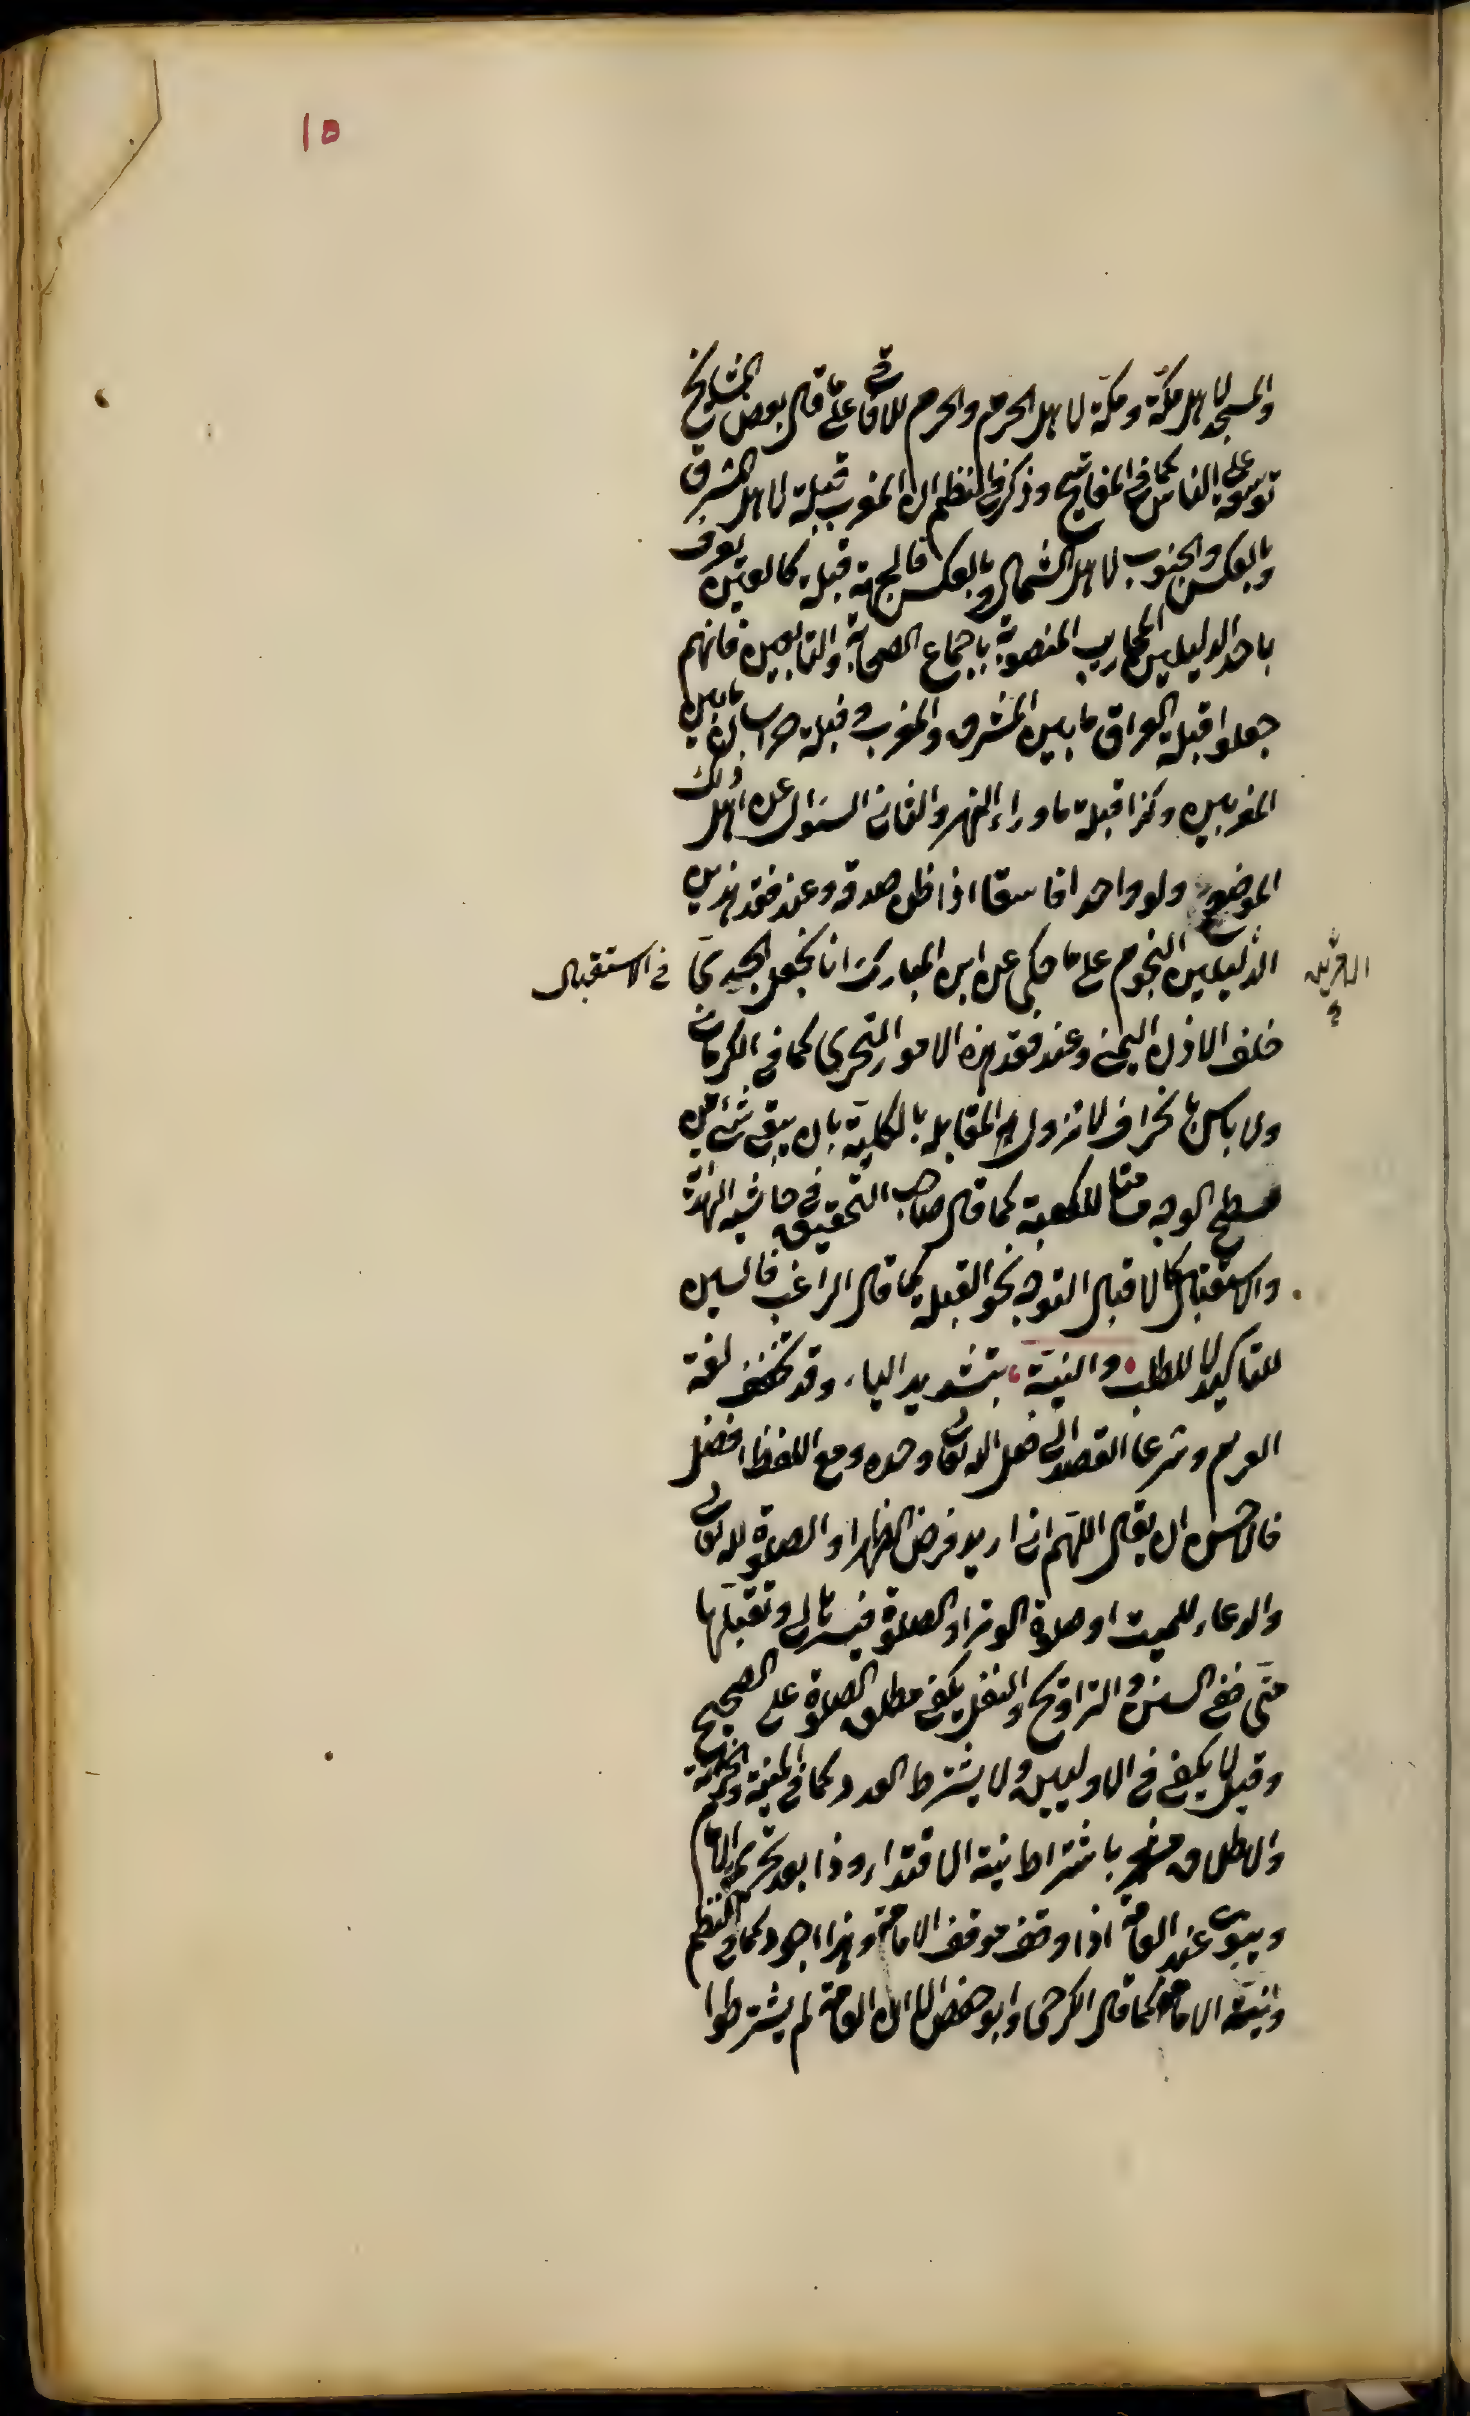 ١٥
والمسجد لاهل مكة ومكة لاهل الحرم والحرم للآفاقي على ما قال بعض المشايخ
توسعة على الناس كما في المفاتيح وذكر في النظم ان المغرب قبلة لاهل المشرق
وبالعكس والجنوب لاهل الشمال وبالعكس فالجهة قبلة كالعين يعرف
باحد الدليلين المحاريب المنصوبة باجماع الصحابة والتابعين فانهم
جعلوا قبلة العراق ما بين المشرق والمغرب وقبلة خراسان ما بين
المغربين وكذا قبلة ما وراء النهر والثاني السؤال عن اهل ذلك
الموضع ولو واحدا فاسقا اذا ظن صدقه وعند فقد هذين
الدليلين النجوم على ما حكى عن ابن المبارك انا نجعل الجدي
في الاستقبال
خلف الاذن اليمنى وعند فقد هذه الامور التحري كما في الكرماني
ولا باس بانحراف لا تزول به المقابلة بالكلية بان يبقى شئ من
سطح الوجه مسامتا للكعبة كما قال صاحب التحقيق في حاشية الهداية
والاستقبال كالاقبال التوجه نحو القبلة كما قال الراغب فالسين
للتاكيد لا للطلب والنية بتشديد الياء وقد تخفف لغة
العزم وشرعا القصد الى فعل لله تعالى وحده ومع اللفظ افضل
فالاحسن ان يقال اللهم اني اريد فرض الظهر او الصلوة لله تعالى
والدعاء للميت او صلاة الوتر او الصلوة فيسرها لي وتقبلها
مني ففي السنن والتراويح والنفل يكفي مطلق الصلوة على الصحيح
وقيل لا يكفي في الاوليين ولا يشترط العدد كما في المنية
والاطلاق مشير باشتراط نية الاقتداء وذا بعد تحريم الامام
وينوي عند العامة اذا وقف موقف الامامة وهذا اجود كما في النظم
ونية الامامة كما قال الكرخي وابو حفص الا ان العامة لم يشترطوا